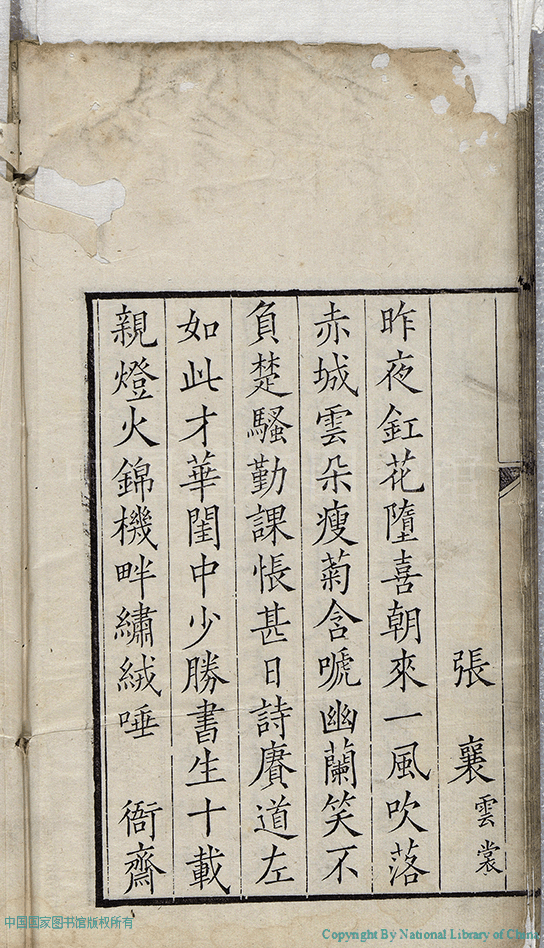 張　襄雲裳
昨夜釭花墮喜朝來一風吹落
赤城雲朵瘦菊含嚬幽蘭笑不
負楚騷勤課悵甚日詩賡道左
如此才華閨中少勝書生十載
親燈火錦機畔繡絨唾　衙齋
中国国家图书馆版权所有
Copyright By National Library of China